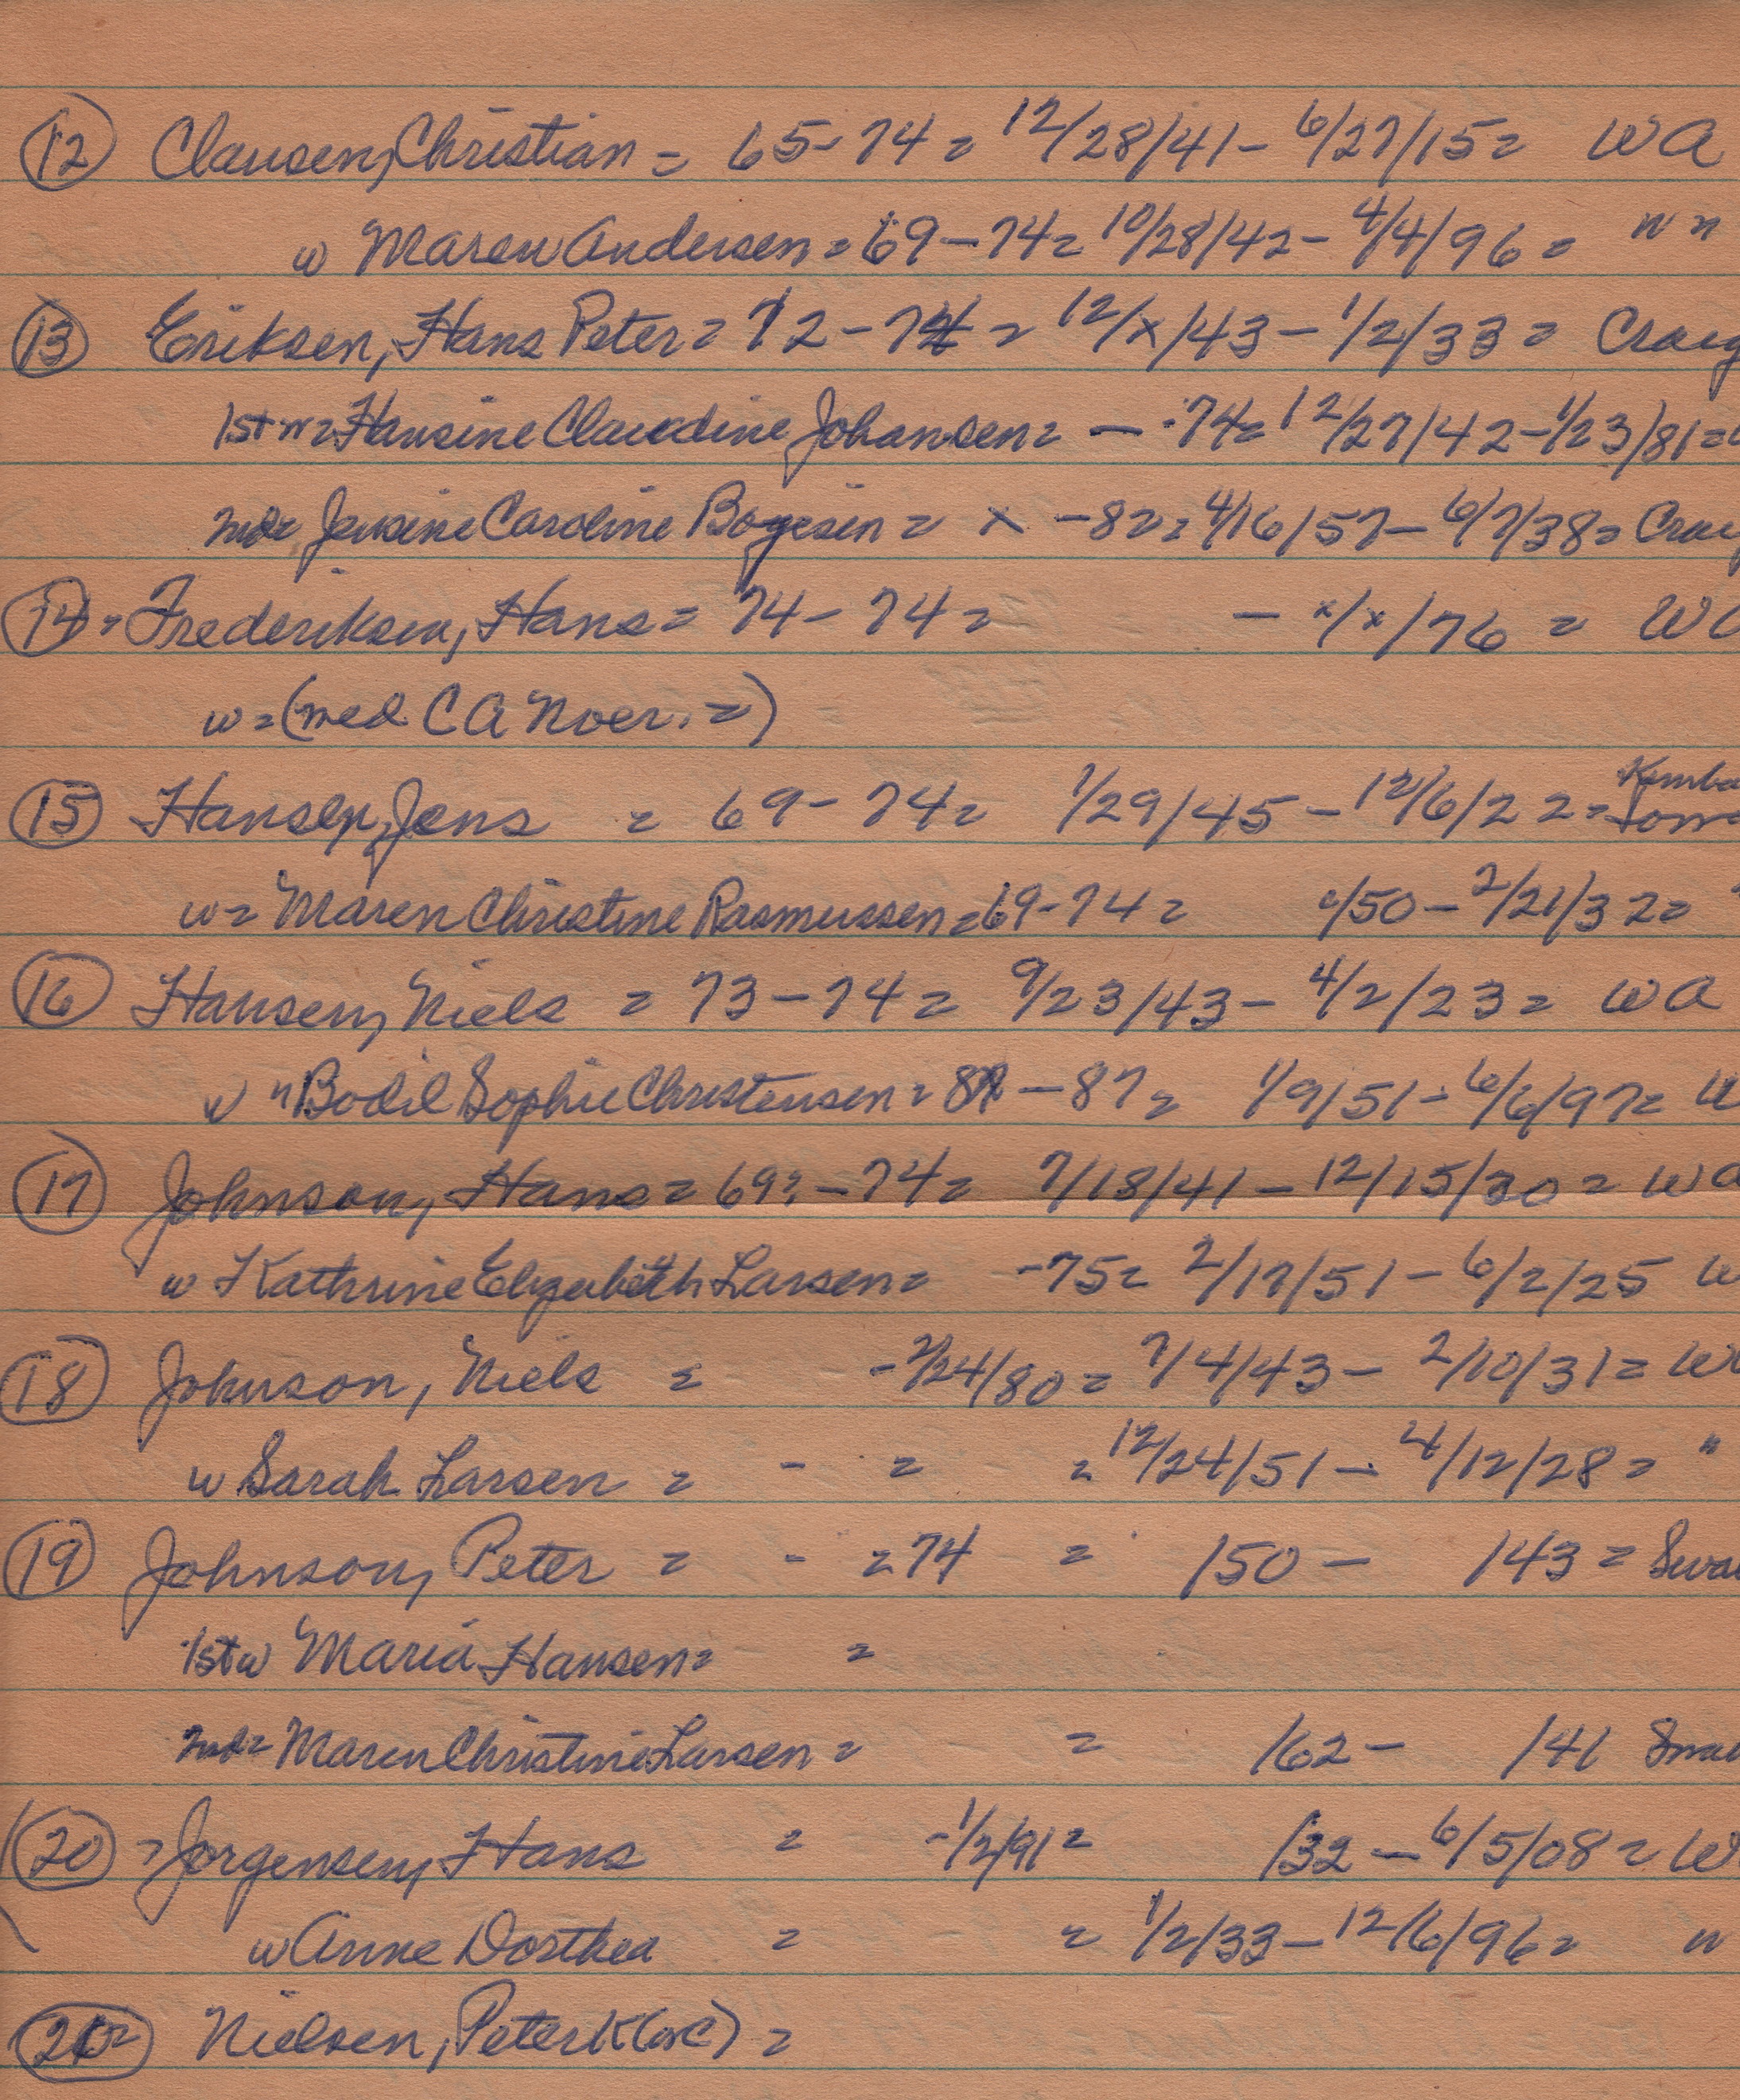 12 Clausen, Christian = 65-74 = 12/28/41 - 6/27/15 = WA
w Maren Andersen = 69-74 = 10/28/42 - 4/4/96 = " "
13 Eriksen, Hans Peter = 72-74 = 12/x/43 - 1/2/33 = Craig
1st w = Hansine Claudine Johansen = - -74 = 12/27/42 - 1/23/81 =
2nd = Jensine Caroline Bogesen = x -82 = 4/16/57 - 6/7/38 = Craig
14 = Frederiksen, Hans = 74-74 = - x/x/76 = WA
w = (med. CA Noer. =)
15 Hansen, Jens = 69-74 = 1/29/45 - 12/6/22 = Kimba
w = Maren Christine Rasmussen = 69-74 = /50 - 2/21/32 = "
16 Hansen, Niels = 73-74 = 9/23/43 - 4/2/23 = WA
w " Bodil Sophie Christensen = -87 = 1/9/51 - 6/6/97 = W
17 Johnson, Hans = 69? - 74 = 7/18/41 - 12/15/30 = WA
w Kathrine Elizabeth Larsen = -75 = 2/17/51 - 6/2/25 W
18 Johnson, Niels = - 2/24/80 = 7/4/43 - 2/10/31 = WA
w Sarah Larsen = - = = 12/24/51 - 4/12/28 = "
19 Johnson, Peter = - = 74 = /50 - /43 = Swa
1st w Maria Hansen = =
2nd = Maren Christine Larsen = = /62 - /41 Swa
20 = Jorgensen, Hans = - 1/2/91 = /32 - 6/5/08 = W
w Anne Dorthea = = 1/2/33 - 12/6/96 = "
Nielsen, Peter K (or C) =